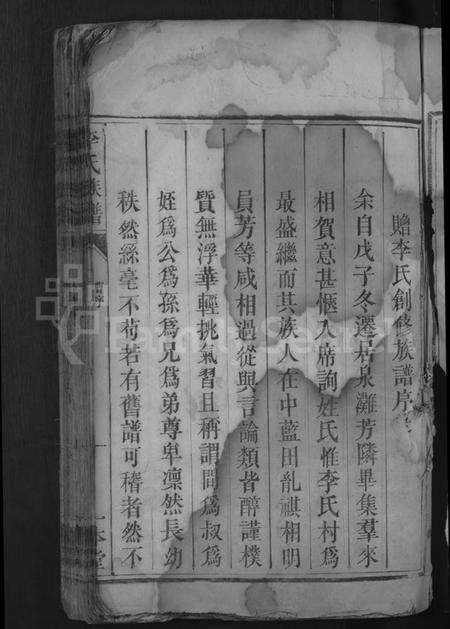 贈李氏創修族譜序
余自戊子冬遷居泉灘芳隣畢集羣來
相賀意甚愜入席詢姓氏惟李氏村爲
最盛繼而其族人在中藍田亂祺相明
員芳等咸相過從與言論類皆醇謹樸
質無浮華輕挑氣習且稱謂間爲叔爲
姪爲公爲孫爲兄爲弟尊卑凛然長幼
秩然絲毫不苟若有舊譜可稽者然不
李氏族譜
一本堂